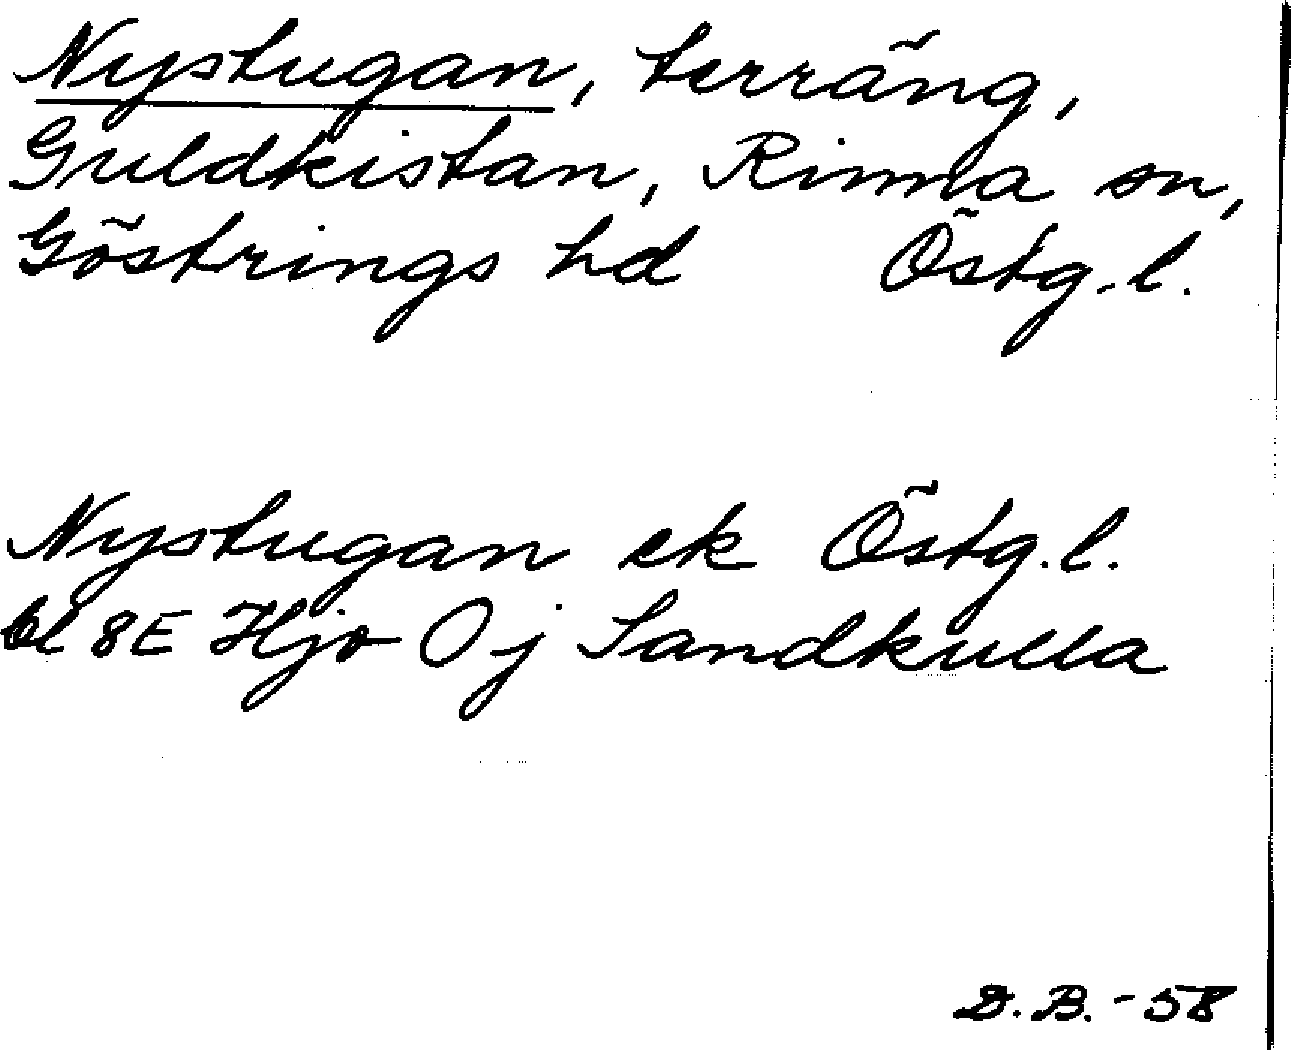 Nystugan, terräng,
Guldkistan, Rinna sn,
Göstrings hd Östg.l.
Nystugan ek Östg.l.
bl 8E Hjo 0j Sandkulla
D.B. -58